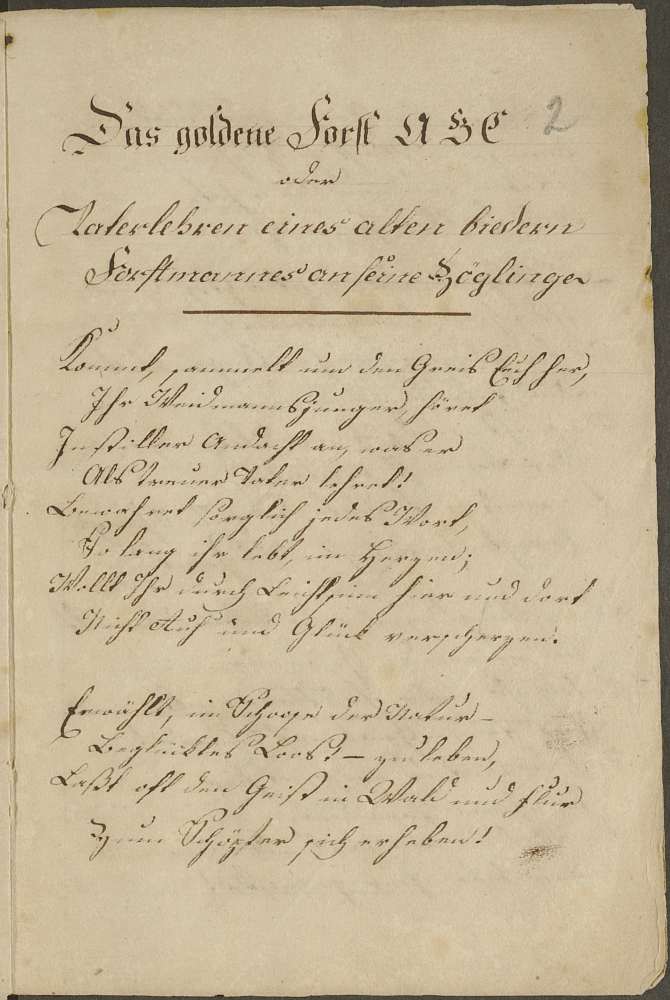 Das goldene Forst A B C 2
oder
Vaterlehren eines alten biedern
Forstmannes an seine Zöglinge
Kommt, sammelt um den Greis Euch her,
Ihr Weidmannsjünger, höret
In stiller Andacht an, was er
Als treuer Vater lehret!
Bewahret sorglich jedes Wort,
So lang ihr lebt, im Herzen;
Wollt Ihr durch Leichtsinn hier und dort
Nicht Ruh und Glück verscherzen.
Erwählt, im Schoose der Natur –
Beglücktes Loos! – zu leben,
Laßt oft den Geist in Wald und Flur
Zum Schöpfer sich erheben!